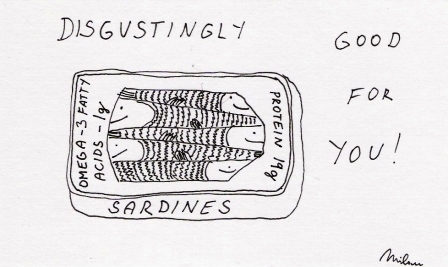 DISGUSTINGLY
GOOD
FOR
YOU!
OMEGA-3 FATTY
ACIDS - 1g
PROTEIN 19g
SARDINES